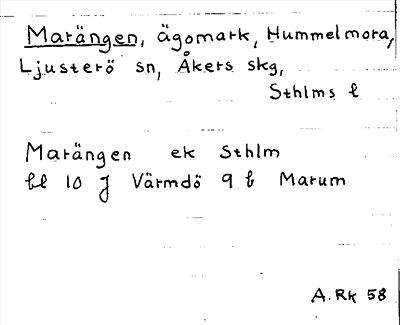 Marängen, ägomark, Hummelmora,
Ljusterö sn, Åkers skg,
Sthlms l
Marängen ek Sthlm
bl 10 J Värmdö 9 b Marum
A. Rk 58